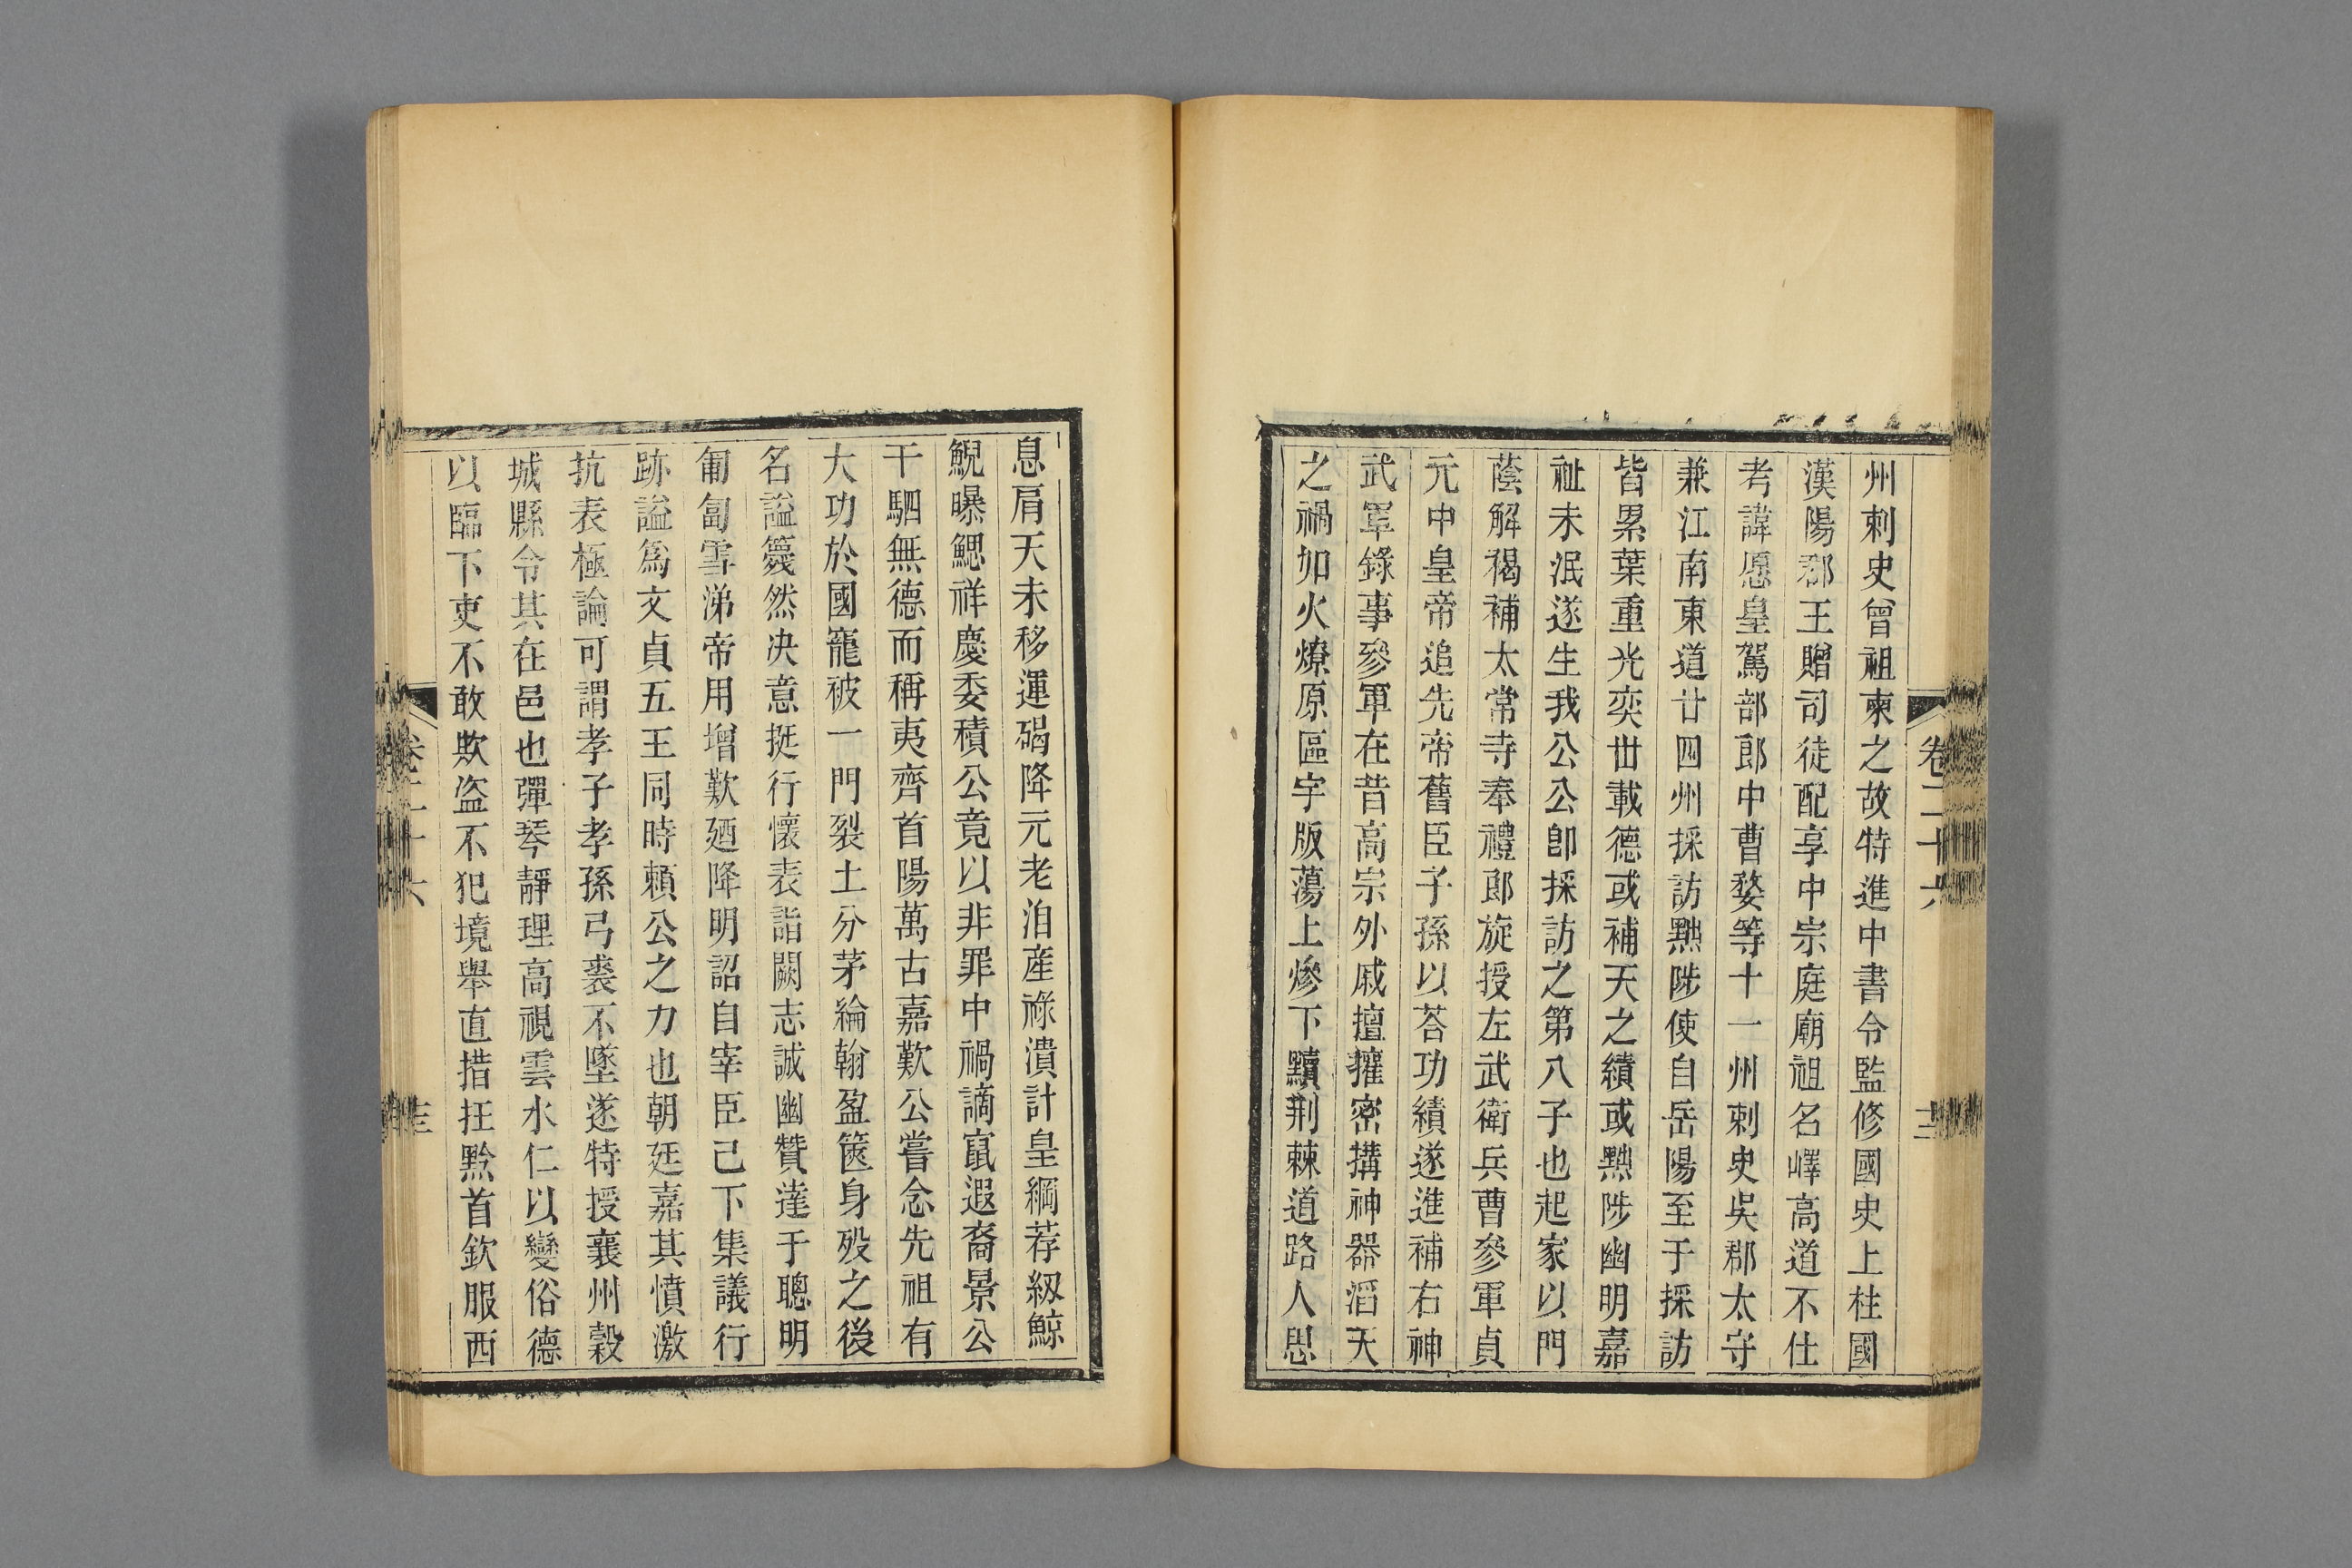 州刺史曾祖柬之故特進中書令監修國史上柱國
漢陽郡王贈司徒配享中宗庭廟祖名嶧高道不仕
考諱愿皇駕部郎中曹婺等十一州刺史吳郡太守
兼江南東道廿四州採訪黜陟使自岳陽至于採訪
皆累葉重光奕丗載德或補天之績或黜陟幽明嘉
祉未泯遂生我公公卽採訪之第八子也起家以門
蔭解褐補太常寺奉禮郎旋授左武衛兵曹參軍貞
元中皇帝追先帝舊臣子孫以荅功績遂進補右神
武軍錄事參軍在昔高宗外戚擅摧密搆神器滔天
之禍如火燎原區宇版蕩上慘下黷荆棘道路人思
卷二十六
十二
息肩天未移運碣降元老洎産祿潰計皇綱荐綴鯨
鯢曝鰓祥慶委積公竟以非罪中禍謫竄遐裔景公
千駟無德而稱夷齊首陽萬古嘉歎公嘗念先祖有
大功於國寵被一門裂土分茅綸翰盈篋身歿之後
名謚篾然决意挺行懷表詣闕志誠幽贊達于聰明
匍匐雪涕帝用增歎廼降明詔自宰臣已下集議行
跡謚爲文貞五王同時頼公之力也朝廷嘉其憤激
抗表極論可謂孝子孝孫弓裘不墜遂特授襄州穀
城縣令其在邑也彈琴靜理高視雲水仁以變俗德
以臨下吏不敢欺盜不犯境舉直措抂黔首欽服西
卷二十六
十三